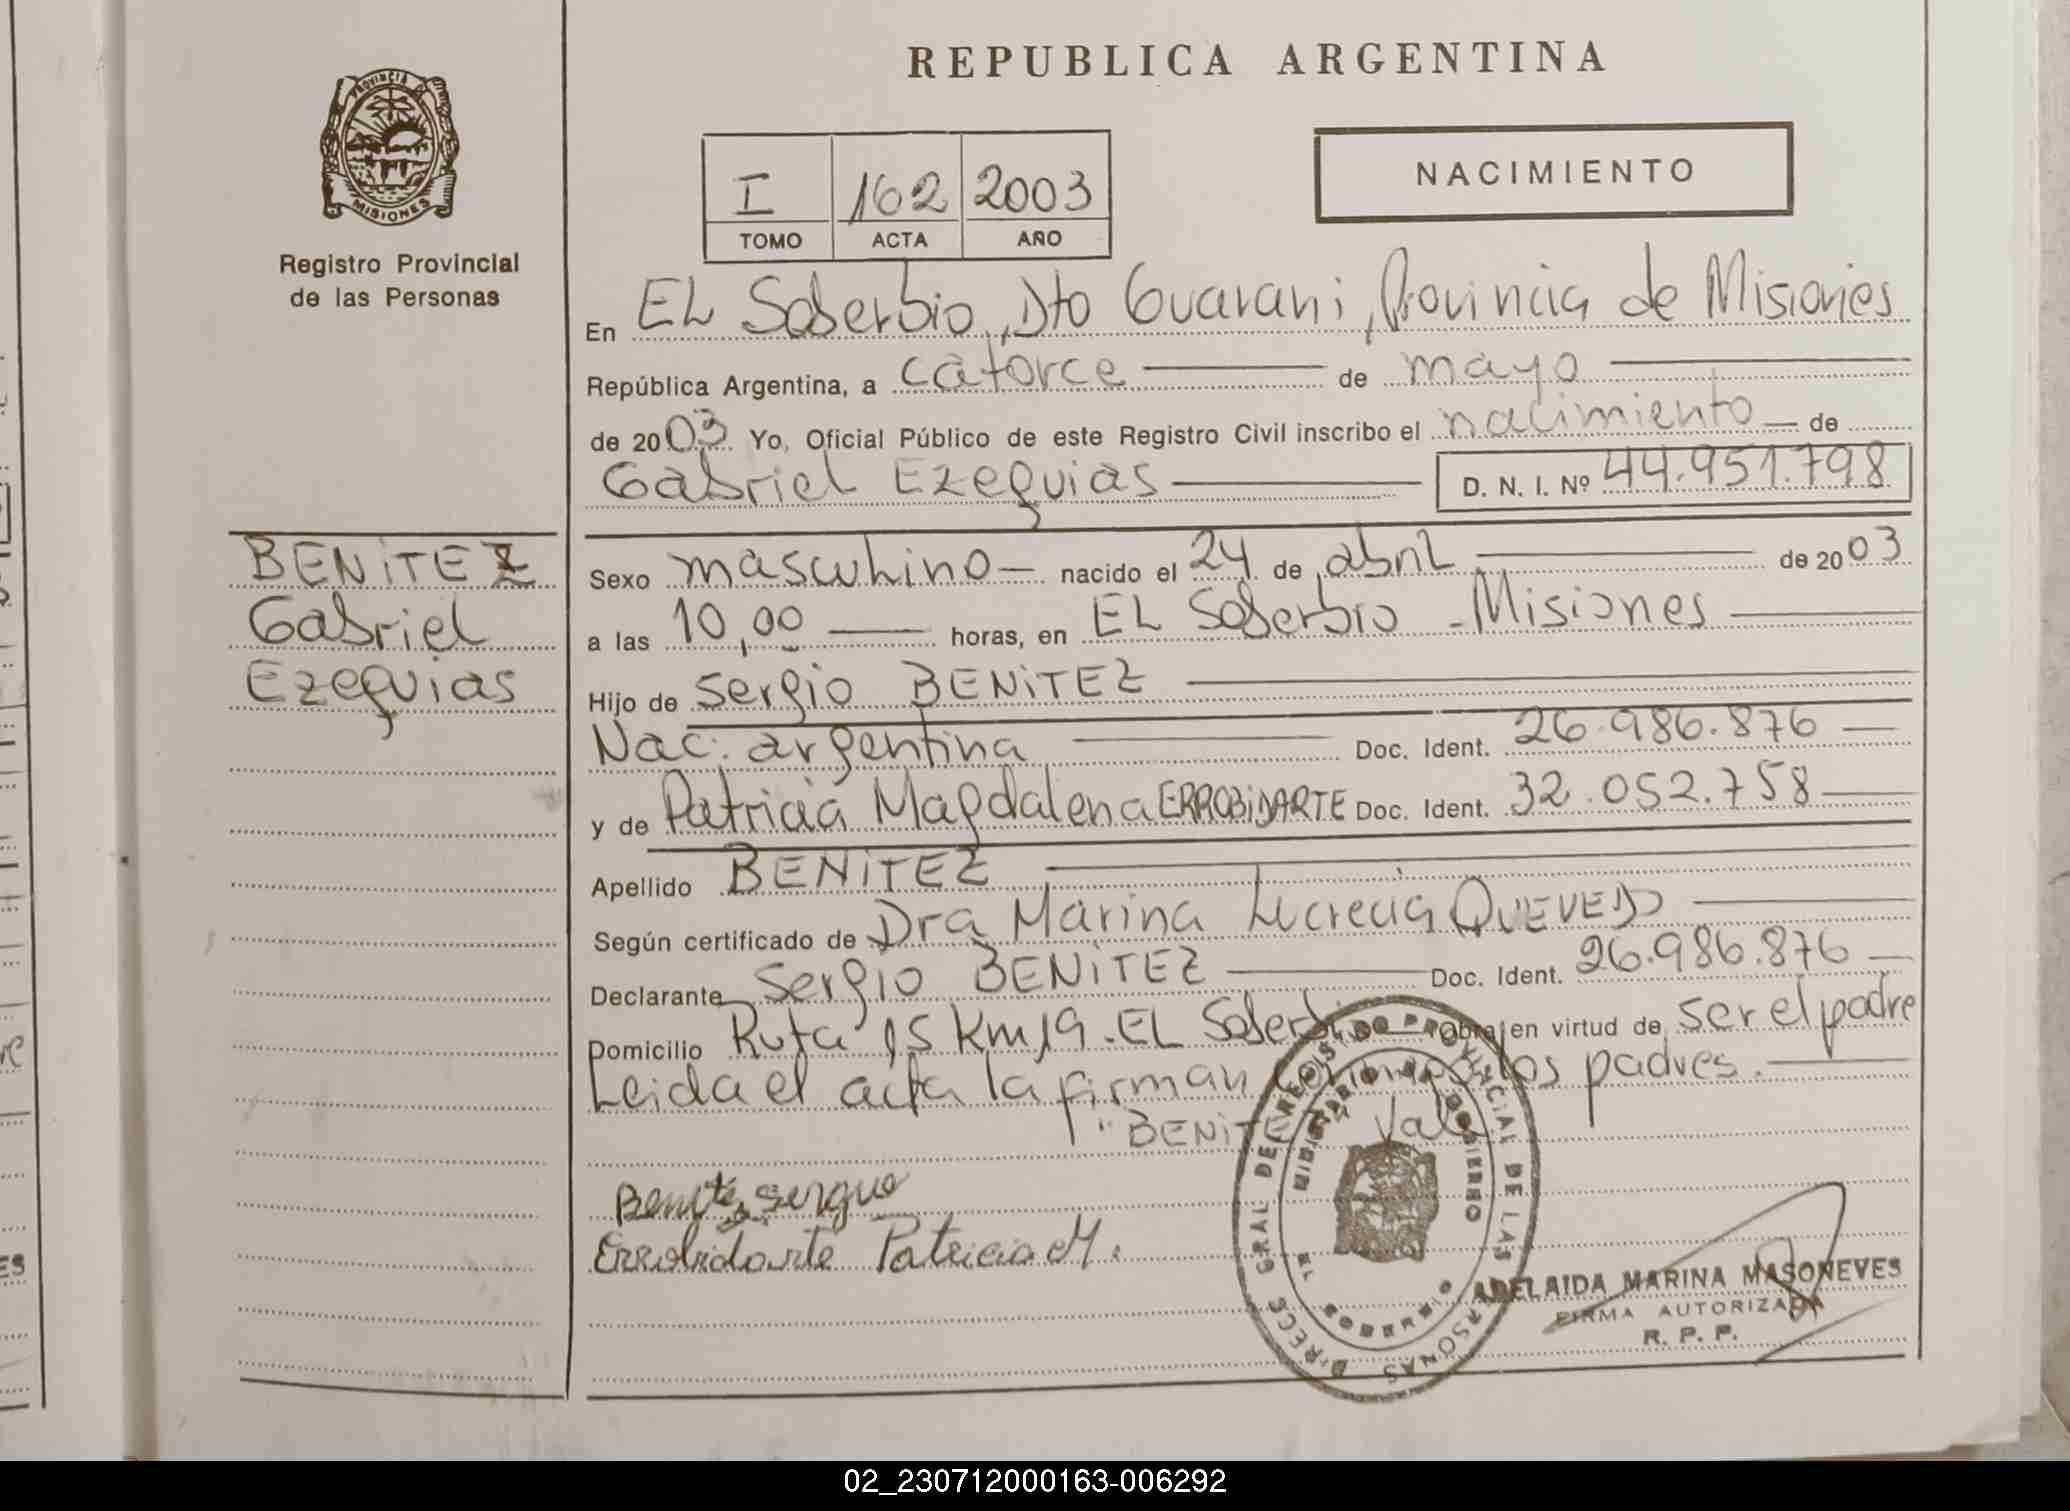 REPUBLICA ARGENTINA
PROVINCIA DE MISIONES
Registro Provincial
de las Personas
I 162 2003
TOMO ACTA AÑO
NACIMIENTO
En EL Soberbio, Dto Guarani, Provincia de Misiones
República Argentina, a catorce de mayo
de 2003 Yo, Oficial Público de este Registro Civil inscribo el nacimiento de
Gabriel Ezequias D. N. I. Nº 44.951.798
BENiTEZ
Gabriel
Ezequias
Sexo masculino nacido el 24 de abril de 2003
a las 10,00 horas, en EL Soberbio - Misiones
Hijo de Sergio BENiTEZ
Nac. argentina Doc. Ident. 26.986.876
y de Patricia Magdalena ERROBiDARTE Doc. Ident. 32.052.758
Apellido BENiTEZ
Según certificado de Dra Marina Lucrecia QUEVEDO
Declarante Sergio BENiTEZ Doc. Ident. 26.986.876
Domicilio Ruta 15 Km 19. EL Soberbio Obra en virtud de ser el padre
Leida el acta la firman los padres.
BENiTEZ Vale
Benitez sergio
Errobidarte Patricia M.
DIRECC GRAL DE REGISTRO PROVINCIAL DE LAS PERSONAS
MINISTERIO DE GOBIERNO
EL SOBERBIO
ADELAIDA MARINA MASONEVES
FIRMA AUTORIZADA
R. P. P.
02_230712000163-006292